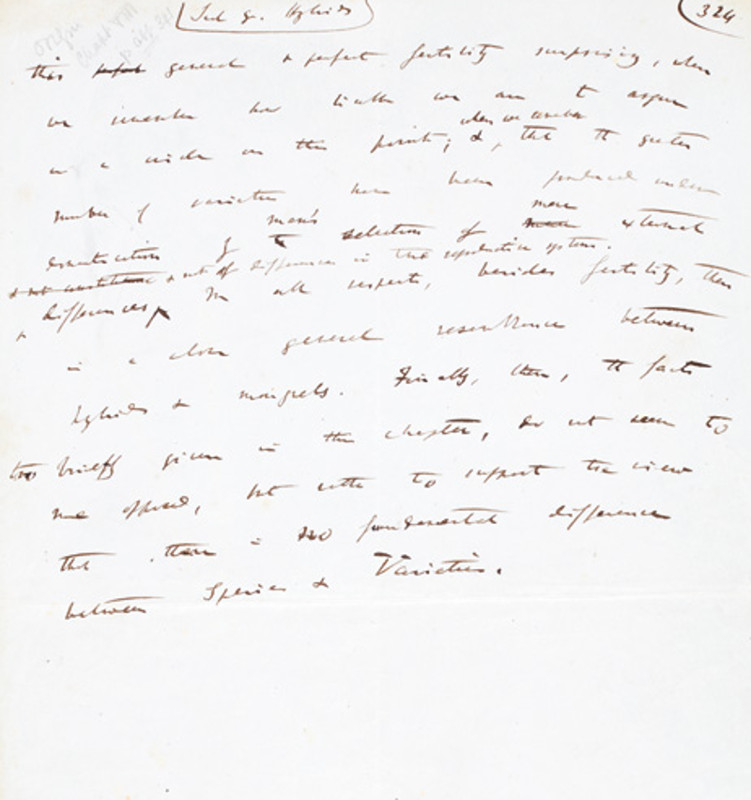 Sect 9. Hybrids
324
Origin
Chapt VIII
this perfect general & perfect fertility surprising, when
we remember how liable we are to argue
when we remember
in a circle on this point; &, that the greater
number of varieties have been produced under
man's more
domestication by the selection of mere external
& not constitutional & not of differences in the reproductive system.
differences, In all respects, besides fertility, there
is a close general resemblance between
hybrids & mongrels. Finally, then, the facts
too briefly given in this chapter, do not seem to
me opposed, but rather to support the view
that there is no fundamental difference
between Species & Varieties.